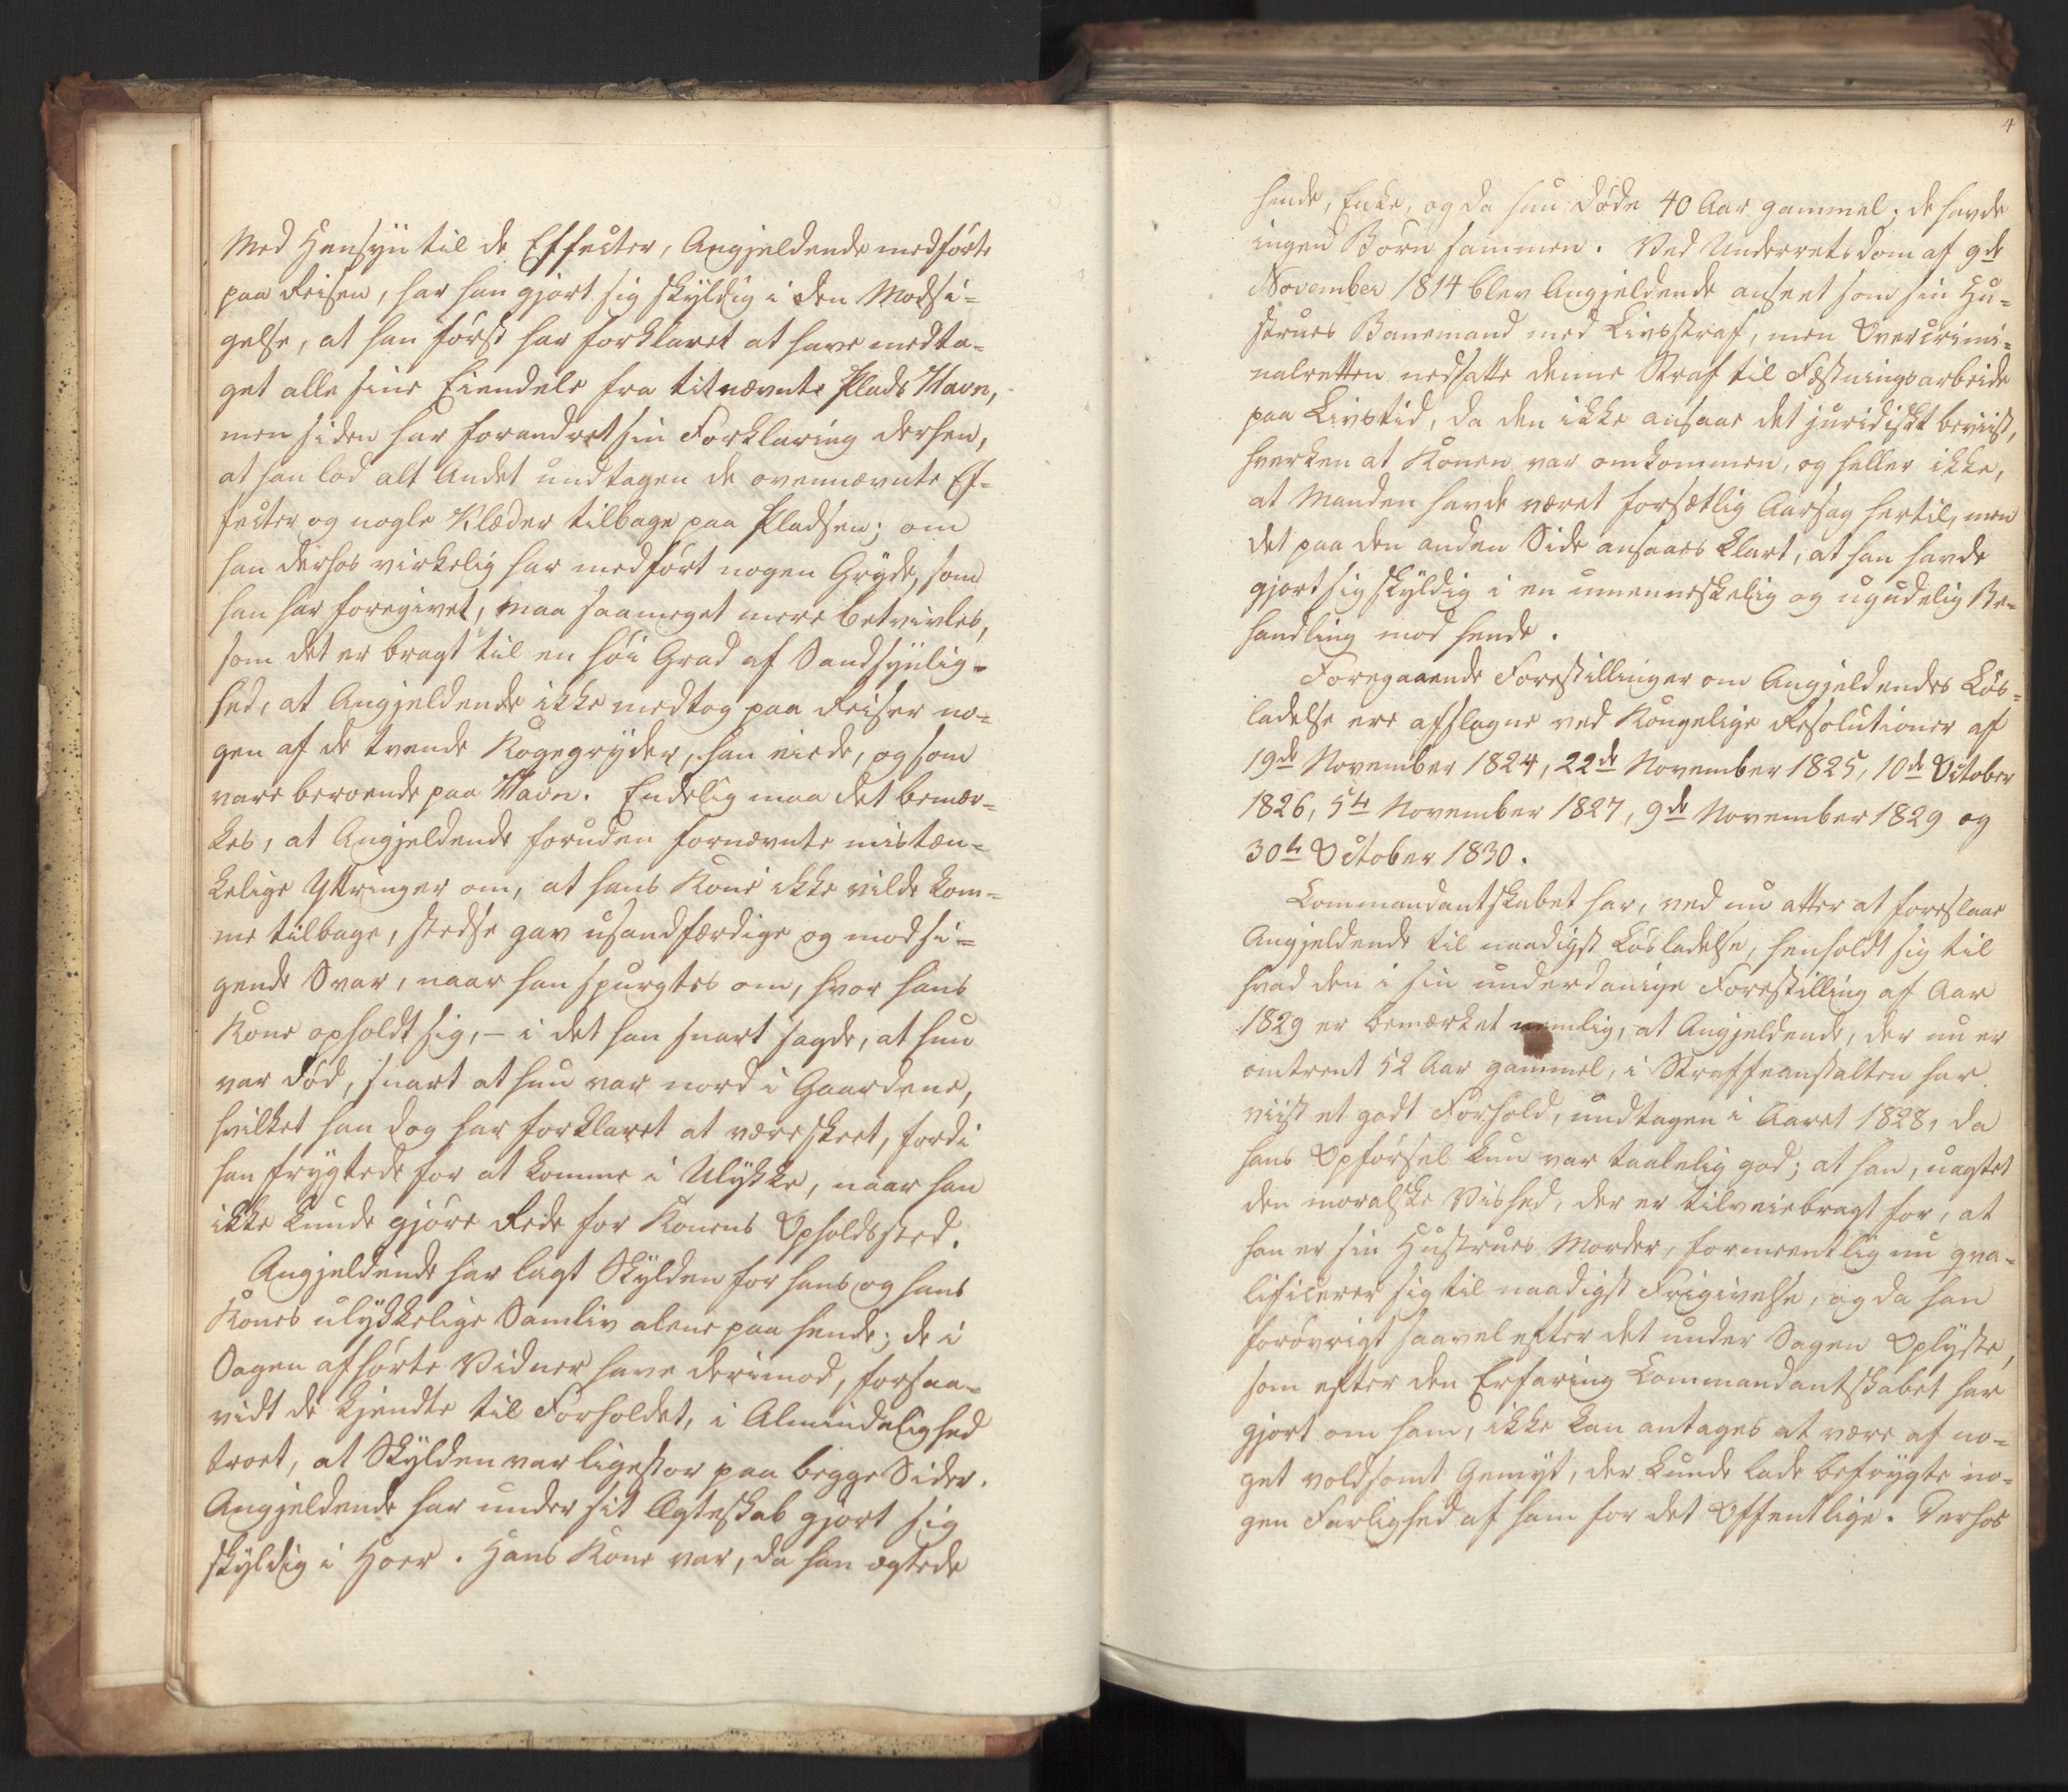 Med Hensyn til de Effecter, Angjeldende medførte
paa Reisen, har han gjort sig skyldig i den Modsi=
gelse, at han først har forklaret at have medta=
get alle sine Eiendele fra titnævnte Plads Mavn,
men siden har forandret sin Forklaring derhen,
at han lod alt Andet undtagen de ovennævnte Ef=
fecter og nogle Klæder tilbage paa Pladsen; om
han derhos virkelig har medført nogen Gryde, som
han har foregivet, maa saameget mere betvivles,
som det er bragt til en høi Grad af Sandsynlig=
hed, at Angjeldende ikke medtog paa Reisen no=
gen af de tvende Kogegryder, han eiede, og som
vare beroende paa Mavn. Endelig maa det bemær=
kes, at Angjeldende foruden fornævnte mistæn=
kelige Yttringer om, at hans Kone ikke vilde kom=
me tilbage, stedse gav usandfærdige og modsi=
gende Svar, naar han spurgtes om, hvor hans
Kone opholdt sig, – i det han snart sagde, at hun
var død, snart at hun var nord i Gaardene,
hvilket han dog har forklaret at være skeet, fordi
han frygtede for at komme i Ulykke, naar han
ikke kunde gjøre Rede for Konens Opholdssted.
Angjeldende har lagt Skylden for hans og hans
Kones ulykkelige Samliv alene paa hende; de i
Sagen afhørte Vidner have derimod, forsaa=
vidt de kjendte til Forholdet, i Almindelighed
troet, at Skylden var ligestor paa begge Sider.
Angjeldende har under sit Ægteskab gjort sig
skyldig i Hoer. Hans Kone var, da han ægtede
4
hende, Enke, og da hun døde 40 Aar gammel; de havde
ingen Børn sammen. Ved Underretsdom af 9de
November 1814 blev Angjeldende anseet som sin Hu=
strues Banemand med Livsstraf, men Overcrimi=
nalretten nedsatte denne Straf til Fæstningsarbeide
paa Livstid, da den ikke ansaae det juridiskt beviist,
hverken at Konen var omkommen, og heller ikke,
at Manden havde været forsætlig Aarsag hertil, men
det paa den anden Side ansaaes klart, at han havde
gjort sig skyldig i en umenneskelig og ugudelig Be=
handling mod hende.
Foregaaende Forestillinger om Angjeldendes Løs=
ladelse ere afslagne ved Kongelige Resolutioner af
19de November 1824, 22de November 1825, 10de October
1826, 5te November 1827, 9de November 1829 og
30te October 1830.
Commandantskabet har, ved nu atter at foreslaae
Angjeldende til naadigst Løsladelse, henholdt sig til
hvad den i sin underdanige Forestilling af Aar
1829 er bemærket nemlig, at Angjeldende, der nu er
omtrent 52 Aar gammel, i Straffeanstalten har
viist et godt Forhold, undtagen i Aaret 1828, da
hans Opførsel kun var taalelig god; at han, uagtet
den moralske Vished, der er tilveiebragt for, at
han er sin Hustrues Morder, formeentlig nu qva=
lificerer sig til naadigst Frigivelse, og da han
forøvrigt saavel efter det under Sagen Oplyste,
som efter den Erfaring Commandantskabet har
gjort om ham, ikke kan antages at være af no=
get voldsomt Gemyt, der kunde lade befrygte no=
gen Farlighed af ham for det Offentlige. Derhos